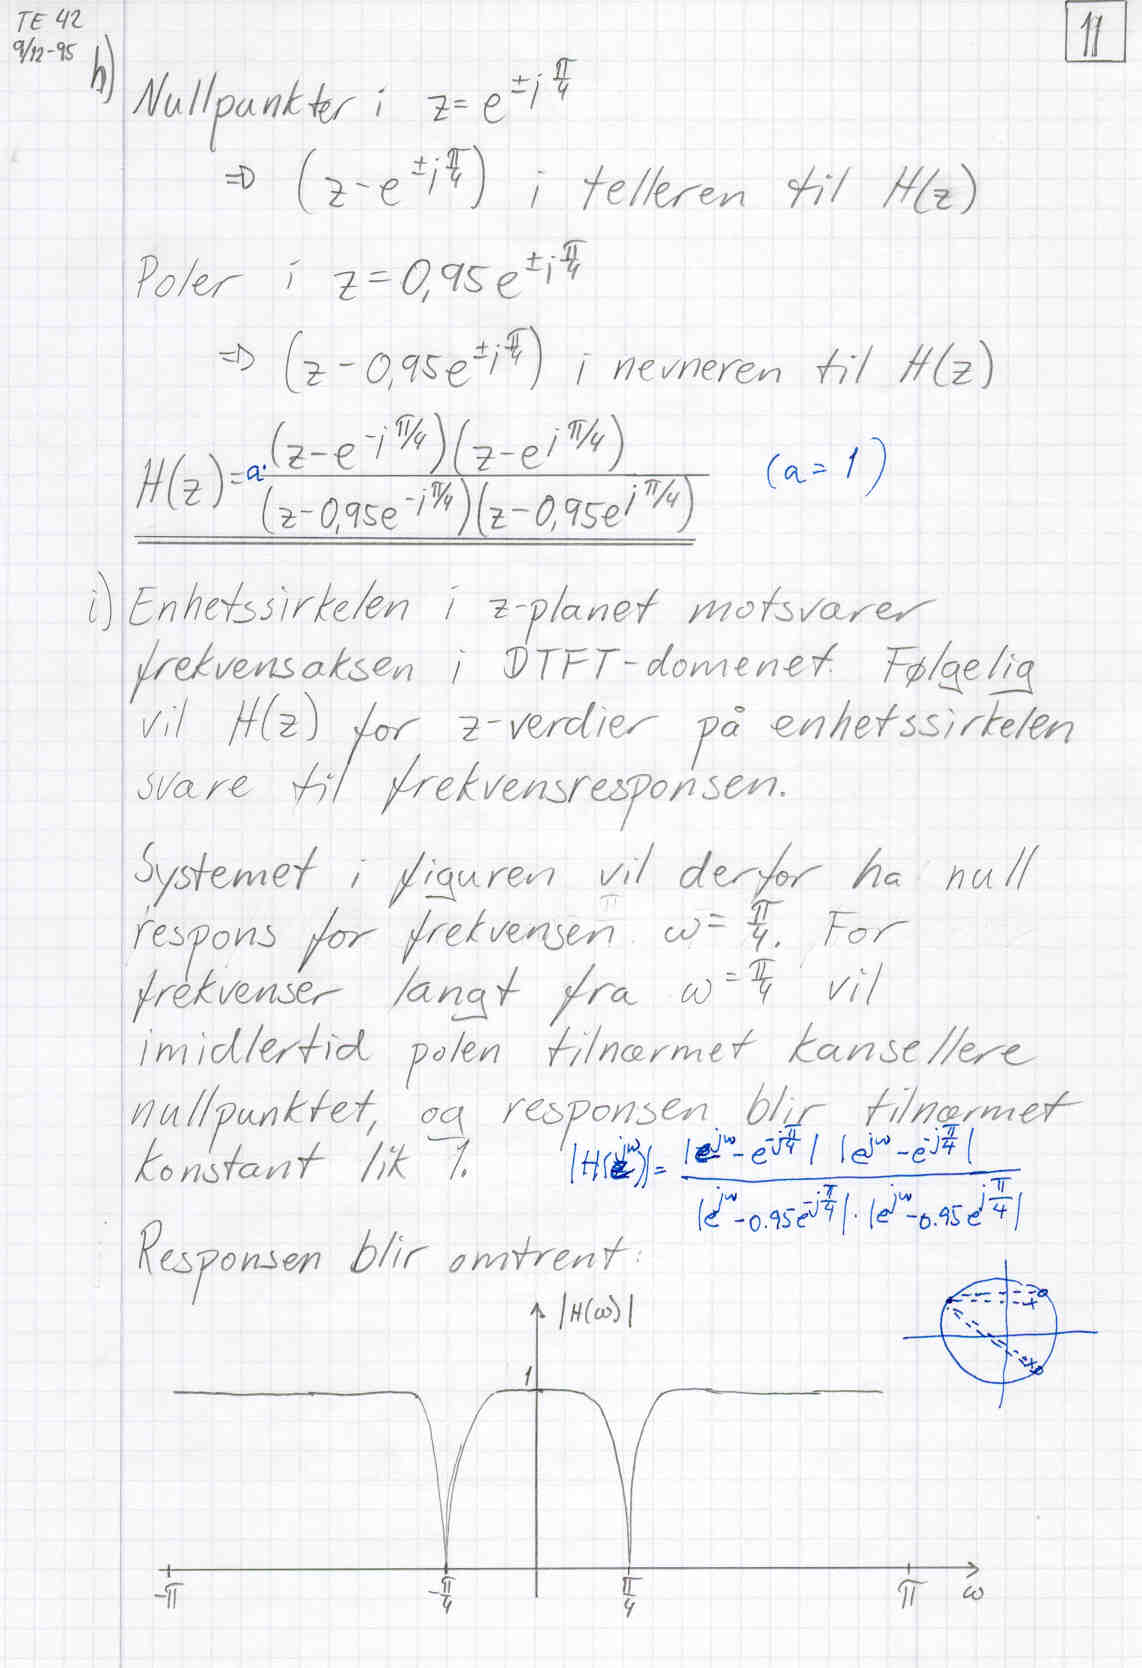 TE 42
9/12-95
11
h) Nullpunkter i z = e^{±j π/4}
⇒ (z - e^{±j π/4}) i telleren til H(z)
Poler i z = 0,95e^{±j π/4}
⇒ (z - 0,95e^{±j π/4}) i nevneren til H(z)
H(z) = a· (z-e^{-j π/4})(z-e^{j π/4}) / (z-0,95e^{-j π/4})(z-0,95e^{j π/4}) (a = 1)
i) Enhetssirkelen i z-planet motsvarer
frekvensaksen i DTFT-domenet. Følgelig
vil H(z) for z-verdier på enhetssirkelen
svare til frekvensresponsen.
Systemet i figuren vil derfor ha null
respons for frekvensen ω = π/4. For
frekvenser langt fra ω = π/4 vil
imidlertid polen tilnærmet kansellere
nullpunktet, og responsen blir tilnærmet
konstant lik 1.
|H(e^{jω})| = |e^{jω} - e^{-j π/4}| |e^{jω} - e^{-j π/4}| / |e^{jω} - 0.95e^{-j π/4}| · |e^{jω} - 0.95e^{j π/4}|
Responsen blir omtrent:
|H(ω)|
1
-π -π/4 π/4 π ω